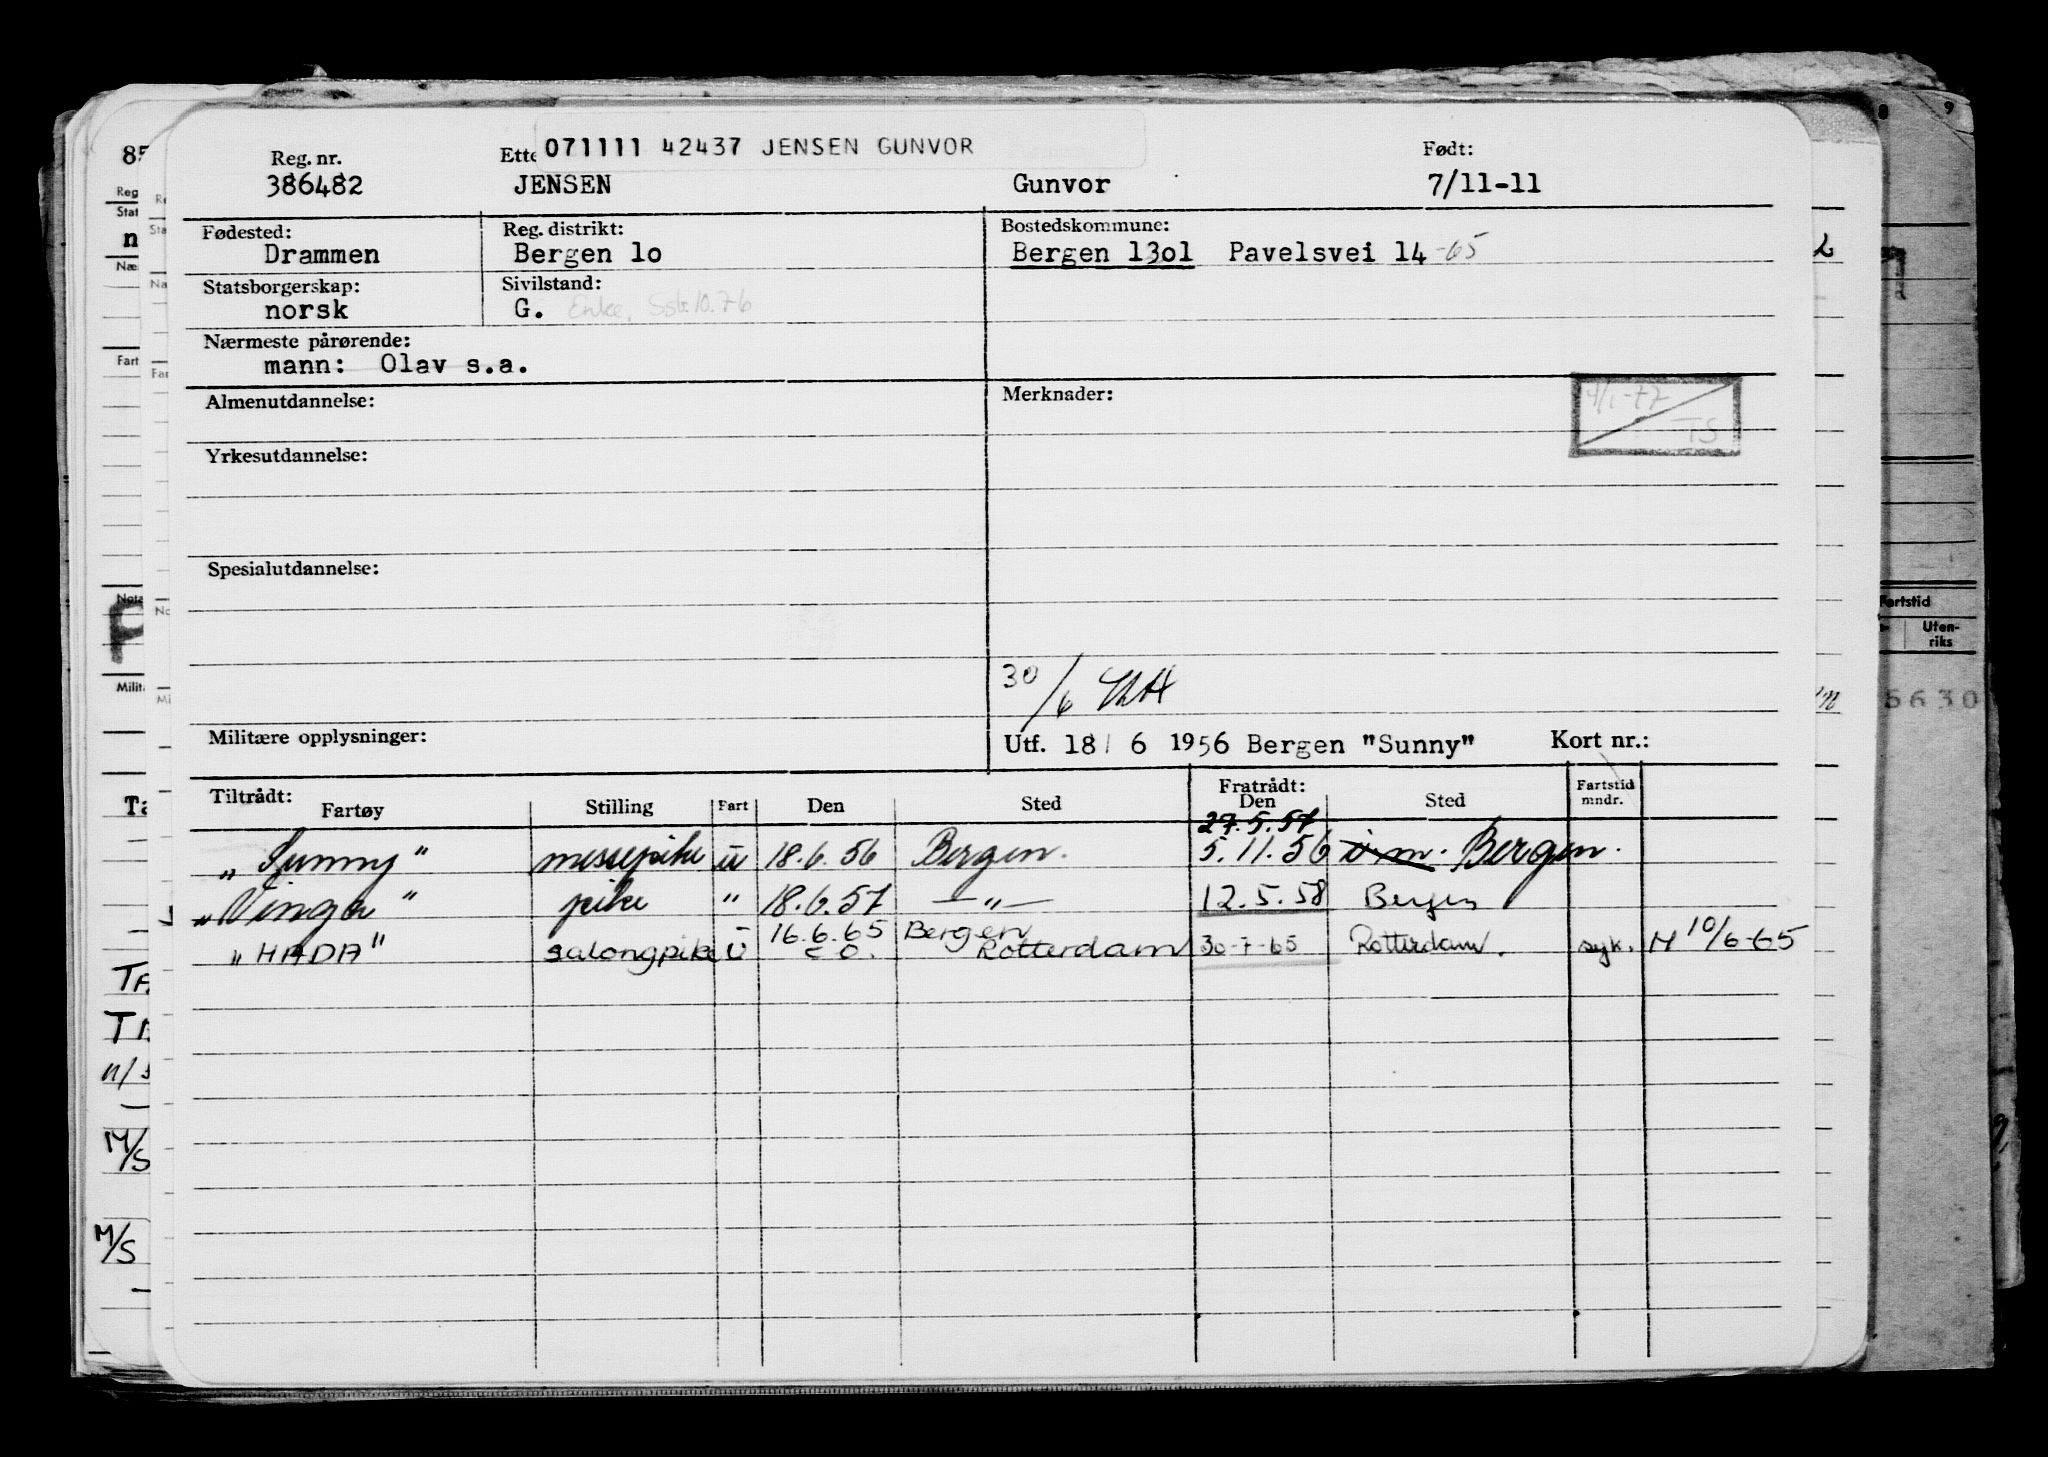 071111 42437 JENSEN GUNVOR
Reg. nr. Ette Født:
386482 JENSEN Gunvor 7/11-11
Fødested: Reg. distrikt: Bostedskommune:
Drammen Bergen 1o Bergen 13o1 Pavelsvei 14 -65
Statsborgerskap: Sivilstand:
norsk G. Enke, 10.76
Nærmeste pårørende:
mann: Olav s.a.
Almenutdannelse: Merknader:
4/1-77
TS
Yrkesutdannelse:
Spesialutdannelse:
30/6
Militære opplysninger: Utf. 18/ 6 1956 Bergen "Sunny" Kort nr.:
Tiltrådt: Fratrådt: Fartstid
Fartøy Stilling Fart Den Sted Den Sted mndr.
27.5.57
"Sunny" messepike u 18.6.56 Bergen. 5.11.56 Bergen.
"Vinga" pike " 18.6.57 —"— 12.5.58 Bergen
16.6.65 Bergen
"HADA" salongpike u Rotterdam 30-7-65 Rotterdam. syk. M 10/6-65
85
Reg
Stat
n
Fart
Nota
Milit
Ta
M/S
M/S
8 9
Fartstid
Uten-
riks
5630